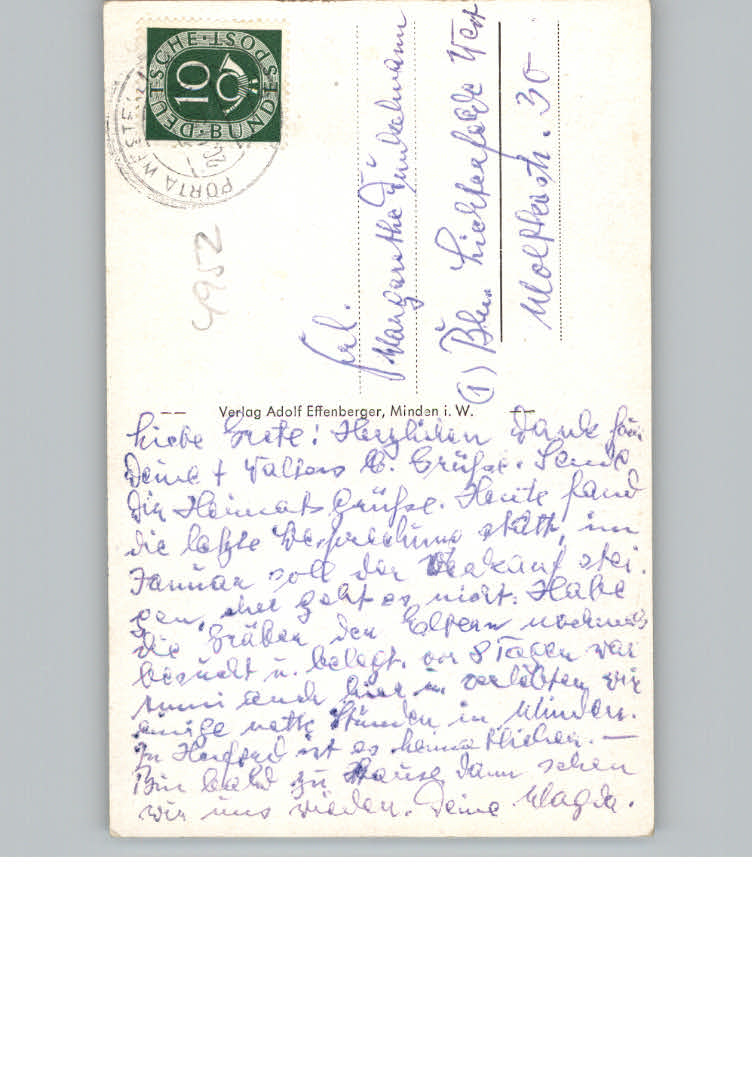 DEUTSCHE BUNDESPOST
10
PORTA WESTF
4952
Frl.
Margarethe
(1) Bln. Lichterfelde West
Moltkestr. 30
Verlag Adolf Effenberger, Minden i. W.
Liebe Grete! Herzlichen Dank für
Deine + Walters Grüße. Sende
Dir Heimatsgrüße. Heute fand
die letzte Besprechung statt, im
Januar soll der Verkauf stei-
gen, eher geht es nicht. Habe
die Gräber der Eltern nochmals
besucht u. belegt. vor 8 Tagen war
auch hier u. verlebten wir
einige nette Stunden in Minden.
In Herford ist es heimatlicher. —
Bin bald zu Hause dann sehen
wir uns wieder. Deine Magda.